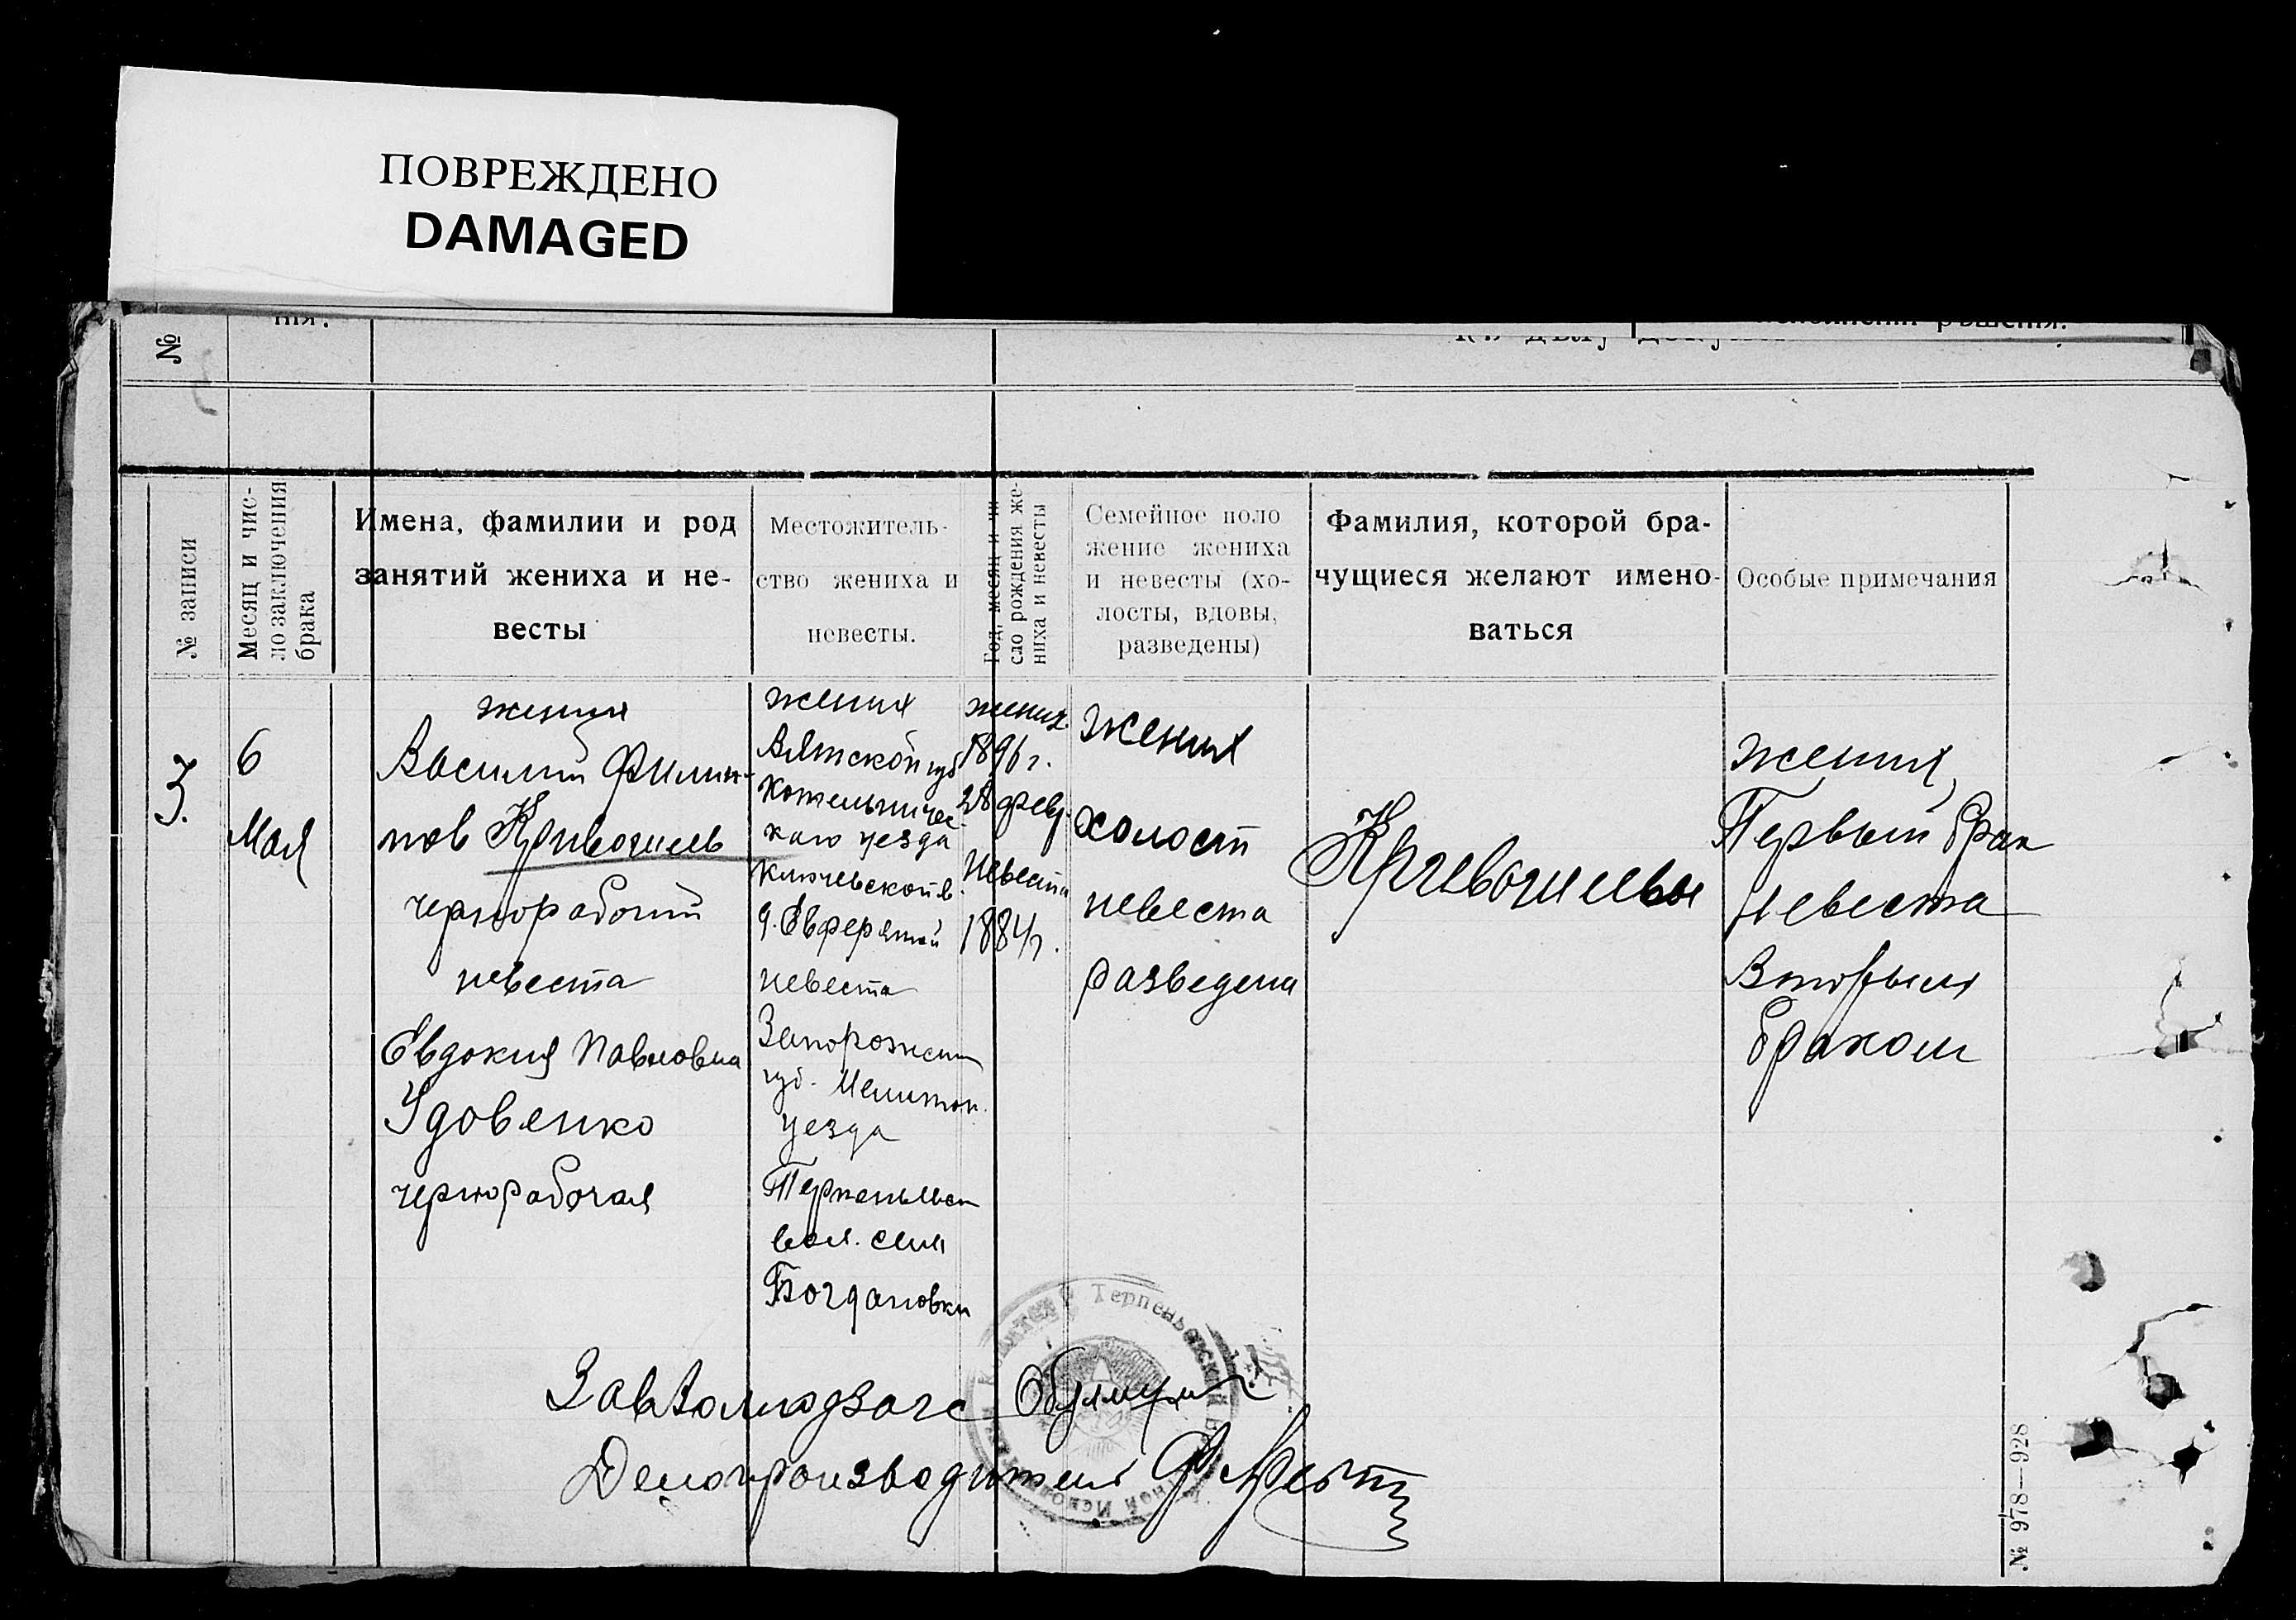 ПОВРЕЖДЕНО
DAMAGED
№
нія.
рѣшенія.
№ записи
Месяц и чис-
ло заключения
брака
Имена, фамилии и род
занятий жениха и не-
весты
Местожитель-
ство жениха и
невесты.
Год, месяц и чи
сло рождения же-
ниха и невесты
Семейное поло
жение жениха
и невесты (хо-
лосты, вдовы,
разведены)
Фамилия, которой бра-
чущиеся желают имено-
ваться
Особые примечания
3.
6
Мая
жених
Василий Филип-
пов Кривошеев
чернорабочий
невеста
Евдокия Павловна
Удовенко
чернорабочая
жених
Вятской губ
Котельничес-
каго уезда
Ключевской в.
д.
невеста
Запорожской
губ. Мелитоп.
уезда
Терпеньевск
вол. села
Богдановки
жених.
1896 г.
28 февр.
Невеста
1884 г.
жених
холост
невеста
разведена
Кривошеевы
жених
Первый брак
Невеста
Вторым
браком
Завволподзагс
Делопроизводитель
Терпеньевский
№ 978—928